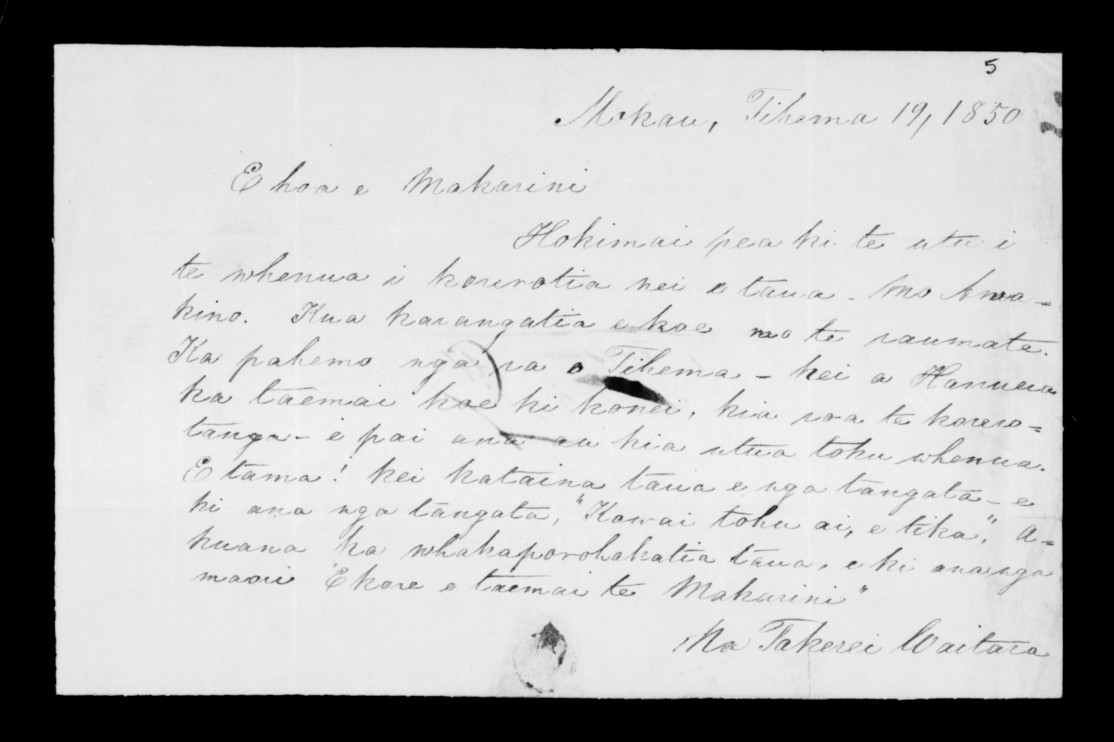 5
Mokau, Tihema 19, 1850
E hoa e Makarini
Hokimai pea ki te utu i
te whenua i korerotia nei e taua - mo Awa-
kino. Kua karangatia e koe mo te raumate.
Ka pahemo nga ra o Tihema - hei a Hanuera
ka taemai koe ki konei, kia roa te korero=
tanga - e pai ana au kia utua toku whenua.
E tama! kei kataina taua e nga tangata - e
ki ana nga tangata, "Kowai tohu ai, e tika," A=
kuana ka whakaporohakatia taua, e ki ana nga
maori "Ekore e taemai te Makarini"
Na Takerei Waitara